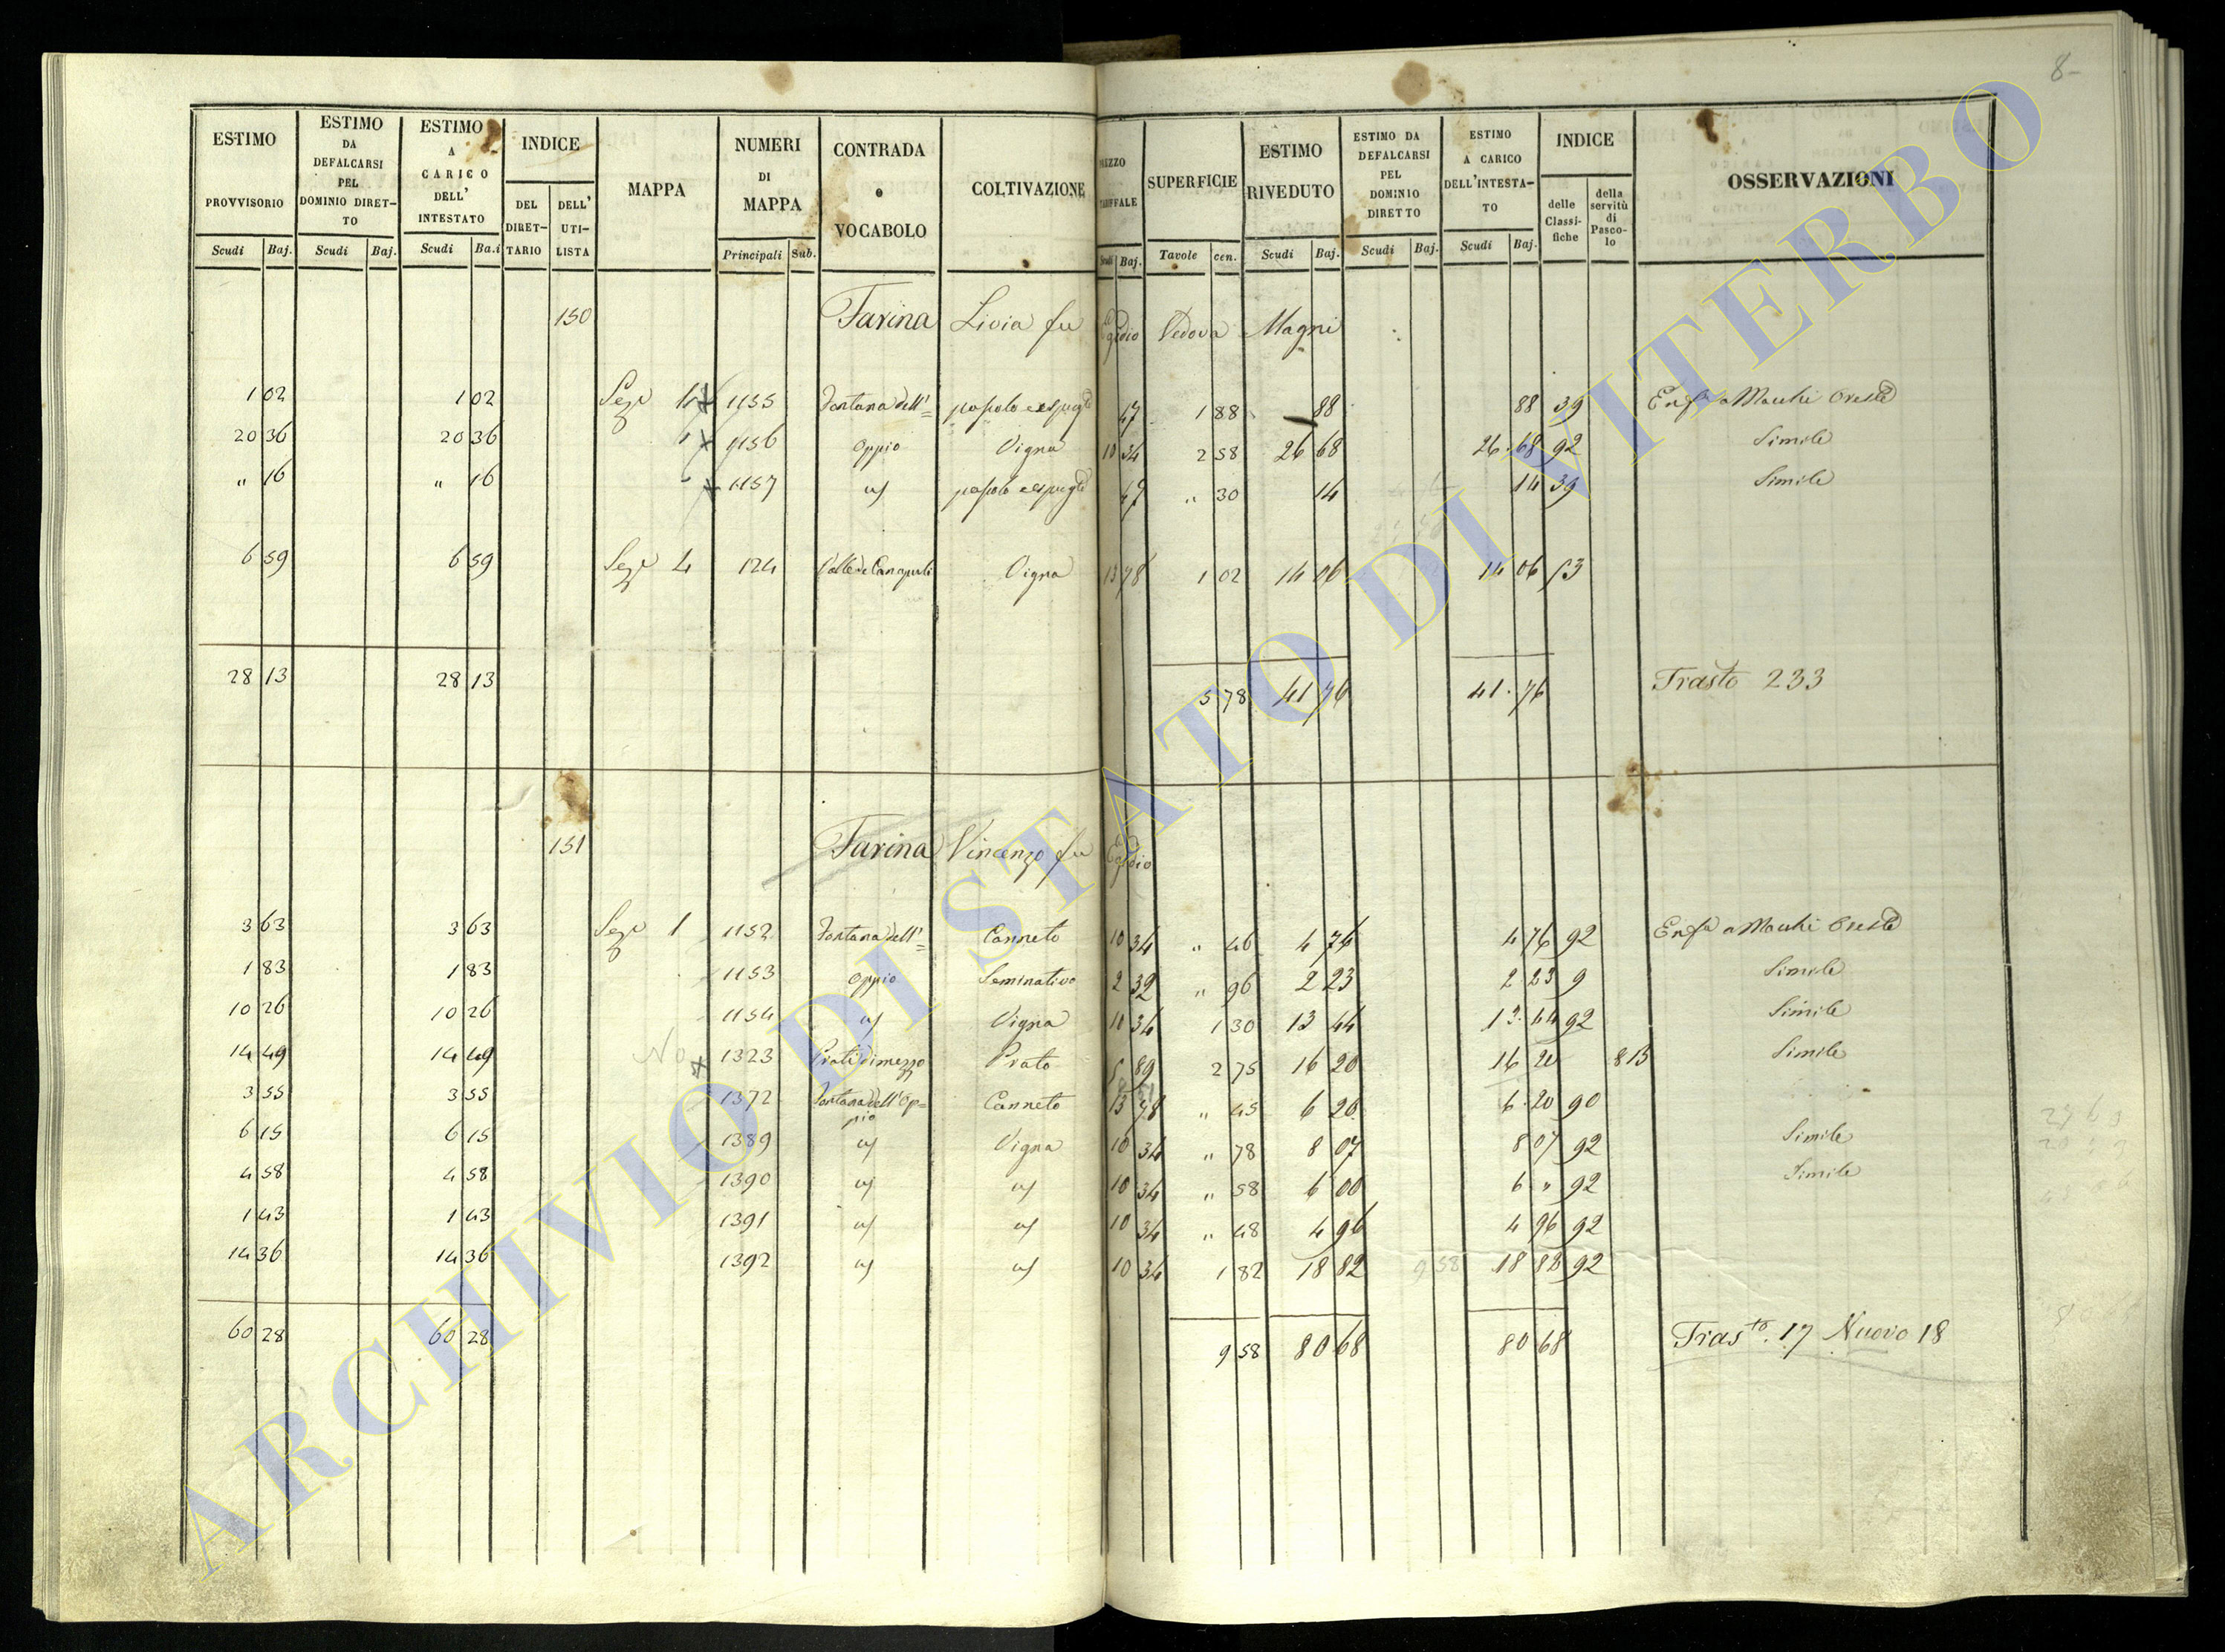 8-
ESTIMO PROVVISORIO Scudi Baj.
ESTIMO DA DEFALCARSI PEL DOMINIO DIRETTO Scudi Baj.
ESTIMO A CARICO DELL' INTESTATO Scudi Ba.i
INDICE DEL DIRETTARIO DELL' UTILISTA
MAPPA
NUMERI DI MAPPA Principali Sub.
CONTRADA o VOCABOLO
COLTIVAZIONE
Baj.
SUPERFICIE Tavole cen.
ESTIMO RIVEDUTO Scudi Baj.
ESTIMO DA DEFALCARSI PEL DOMINIO DIRETTO Scudi Baj.
ESTIMO A CARICO DELL'INTESTATO Scudi Baj.
INDICE delle Classifiche della servitù di Pascolo
OSSERVAZIONI
150 Farina Livia fu Egidio Vedova Magni
1 02 1 02 Sez. 1155 Fontana dell'= 47 1 88 88 88 39
20 36 20 36 " 1156 Oppio Vigna 10 34 2 58 26 68 26 68 92 Simile
" 16 " 16 " 1157 47 " 30 14 14 39 Simile
6 59 6 59 Sez. 4 124 Vigna 13 78 1 02 14 06 14 06
28 13 28 13 5 78 41 76 41 76 Trasto 233
151 Farina Vincenzo fu Egidio
3 63 3 63 Sez. 1 1152 Fontana dell'= Canneto 10 34 " 46 4 76 4 76 92
1 83 1 83 1153 Oppio Seminativo 2 32 " 96 2 23 2 23 9 Simile
10 26 10 26 1154 Vigna 10 34 1 30 13 44 13 44 92 Simile
14 49 14 49 No 1323 Prati di mezzo Prato 5 89 2 75 16 20 16 20 Simile
3 55 3 55 1372 Fontana dell'Op=pio Canneto 13 78 " 45 6 20 6 20 90
6 15 6 15 1389 Vigna 10 34 " 78 8 07 8 07 92 Simile
4 58 4 58 1390 10 34 " 58 6 00 6 " 92 Simile
1 43 1 43 1391 10 34 " 48 4 96 4 96 92
14 36 14 36 1392 10 34 1 82 18 82 9 58 18 82 92
60 28 60 28 9 58 80 68 80 68 Trasto. 17 Nuovo 18
ARCHIVIO DI STATO DI VITERBO